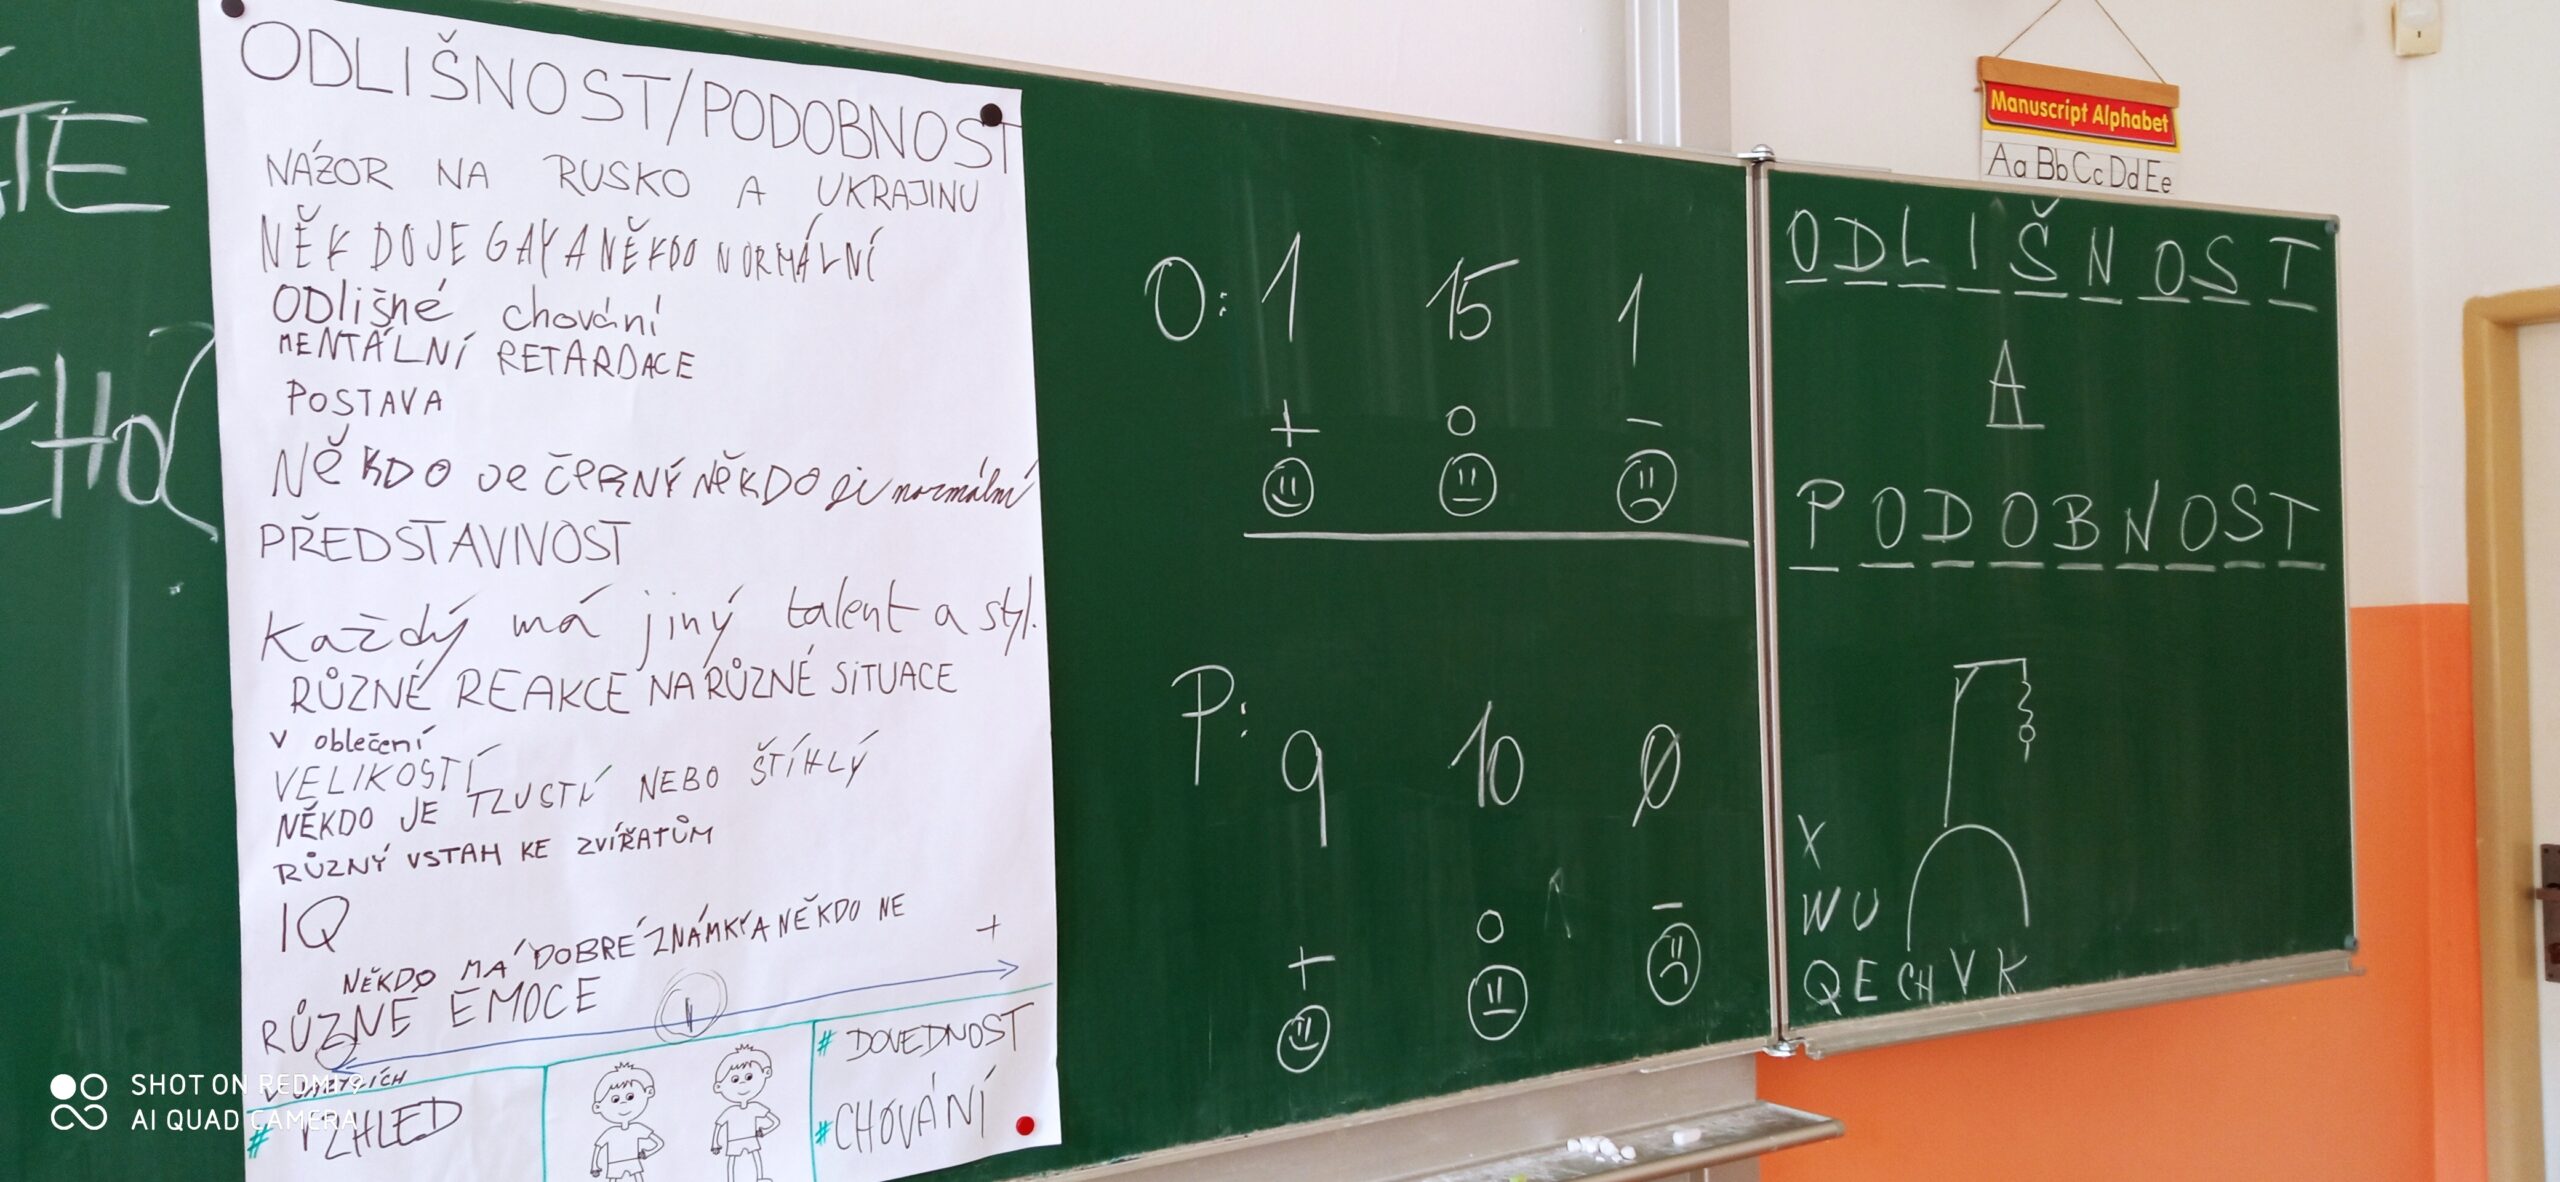 ODLIŠNOST/PODOBNOST
NÁZOR NA RUSKO A UKRAJINU
NĚKDO JE GAY A NĚKDO NORMÁLNÍ
ODlišné chování
MENTÁLNÍ RETARDACE
POSTAVA
NěKDO Je čeRNÝ NěKDO je normální
PŘEDSTAVNOST
Každý má jiný talent a styl.
RŮZNÉ REAKCE NA RŮZNÉ SITUACE
V oblečení
VELIKOSTÍ
NĚKDO JE TLUSTÍ NEBO ŠTÍHLÝ
RŮZNÝ VSTAH KE ZVÍŘATŮM
IQ
NĚKDO MÁ DOBRÉ ZNÁMKY A NĚKDO NE
+
RŮZNÉ EMOCE
# VZHLED
# DOVEDNOST
# CHOVÁNÍ
O: 1 15 1
+ 0 –
P: 9 10 0
+ 0 –
Manuscript Alphabet
Aa Bb Cc Dd Ee
ODLIŠNOST
A
PODOBNOST
X
W U
Q E CH V K
SHOT ON REDMI 9
AI QUAD CAMERA